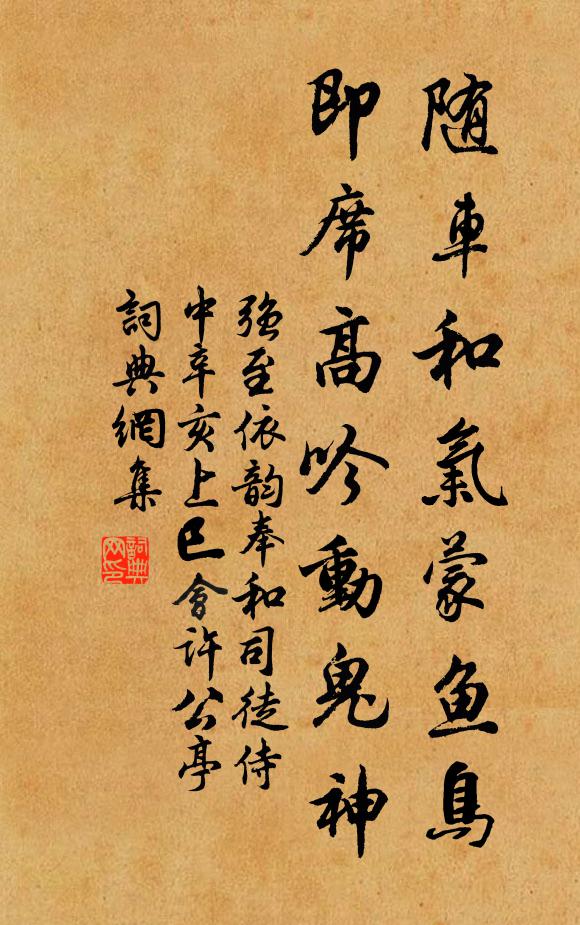 随車和氣蒙鱼鳥
即席高吟動鬼神
强至依韵奉和司徒侍
中辛亥上巳會许公亭
詞典網集
詞典网印